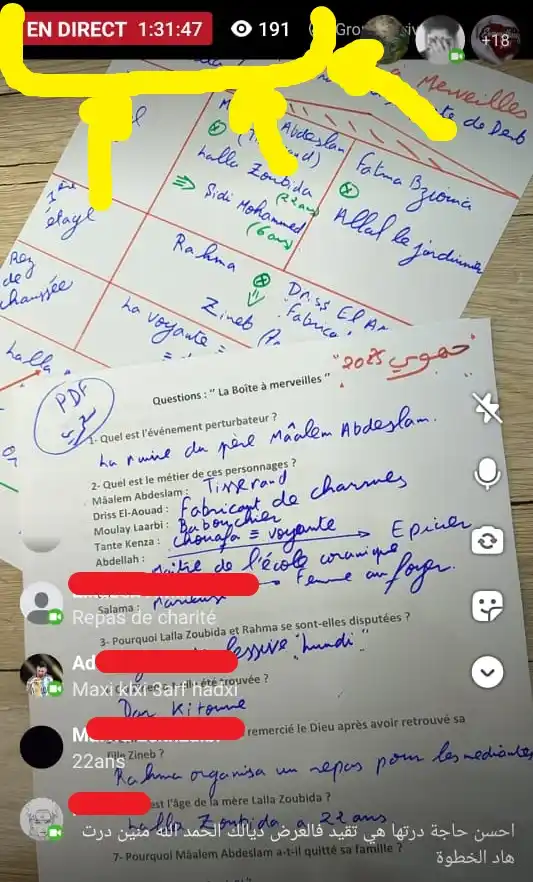 EN DIRECT 1:31:47 191
+18
Merveilles
de Derb
Abdeslam
Lalla Zoubida
(22ans)
⇒ Sidi Mohammed
(6 ans)
Fatma Bziouia
Allal le jardinier
1ère
étage
Rahma
Driss El A
Fabrica
Rez
de
chaussée
La voyante
Zineb
Lalla
PDF
Questions : " La Boîte à merveilles "
جهوي 2025
1- Quel est l'événement perturbateur ?
La ruine du père Mâalem Abdeslam.
2- Quel est le métier de ces personnages ?
Mâalem Abdeslam : Tisserand
Driss El-Aouad : Fabricant de charrues
Moulay Laarbi : Babouchier
Tante Kenza : Chouafa ≡ voyante
Abdellah : Epicier
Maître de l'école coranique
Femme au foyer.
Salama : Marieuse
Repas de charité
3- Pourquoi Lalla Zoubida et Rahma se sont-elles disputées ?
lessive "lundi"
Ad
Maxi klxi 3arf hadxi
été trouvée ?
Dar Kitoune
remercié le Dieu après avoir retrouvé sa
fille Zineb ?
22ans
Rahma organisa un repas pour les mendiants
est l'âge de la mère Lalla Zoubida ?
Lalla Zoubida a 22 ans
احسن حاجة درتها هي تقيد فالعرض ديالك الحمد الله منين درت
هاد الخطوة
7- Pourquoi Mâalem Abdeslam a-t-il quitté sa famille ?